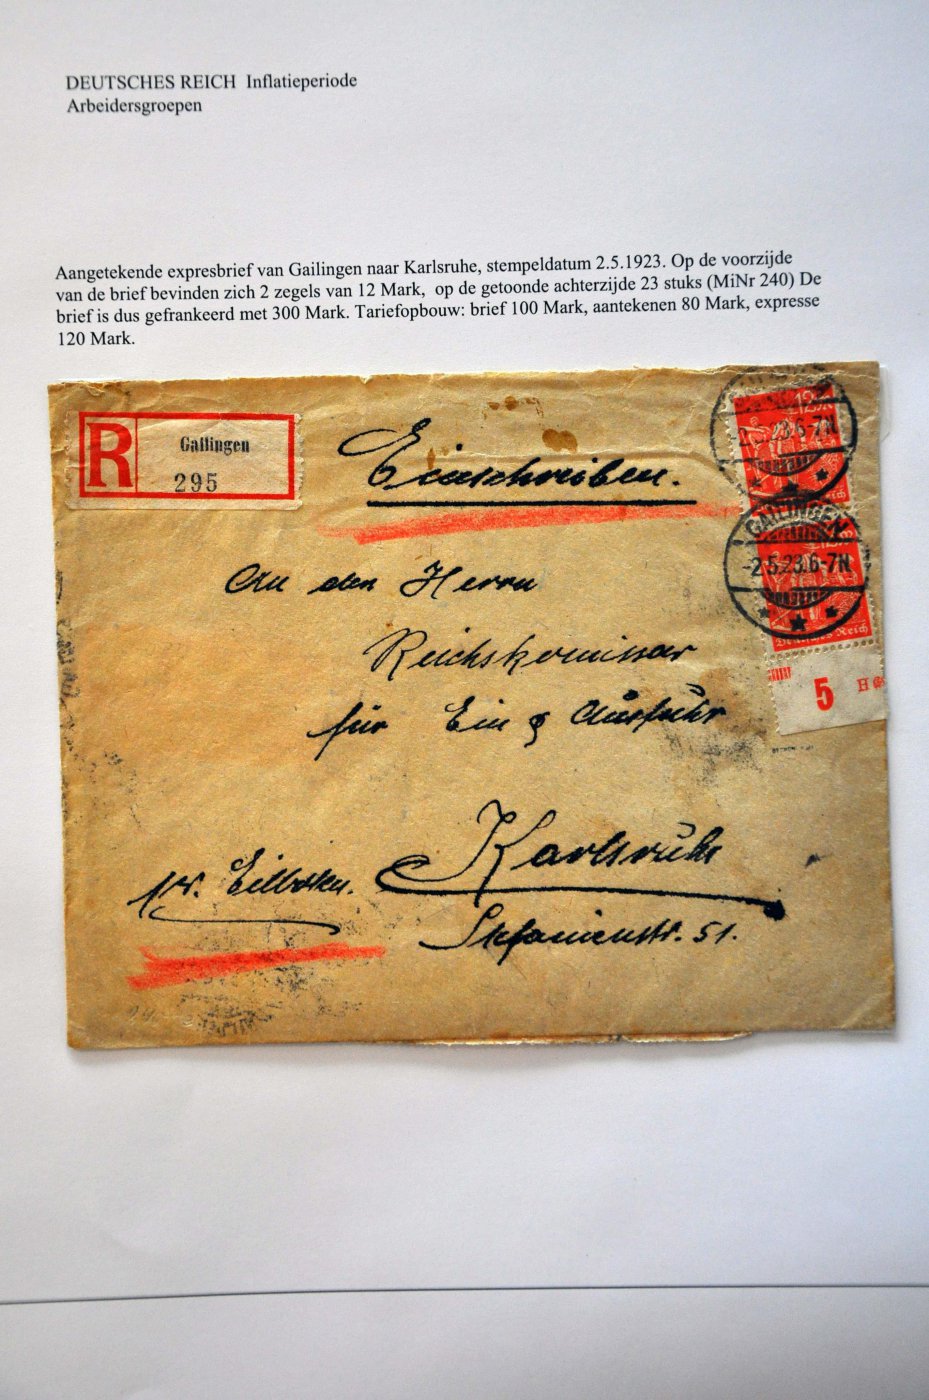 DEUTSCHES REICH Inflatieperiode
Arbeidersgroepen
Aangetekende expresbrief van Gailingen naar Karlsruhe, stempeldatum 2.5.1923. Op de voorzijde
van de brief bevinden zich 2 zegels van 12 Mark, op de getoonde achterzijde 23 stuks (MiNr 240) De
brief is dus gefrankeerd met 300 Mark. Tariefopbouw: brief 100 Mark, aantekenen 80 Mark, expresse
120 Mark.
R Gailingen
295
Einschreiben.
12M
-2.5.23.6-7N
Reich
GAILINGEN
-2.5.23.6-7N
Deutsches Reich
5
An den Herrn
Reichskomissar
für Ein & Ausfuhr
Karlsruhe
pr. Eilboten.
Stefanienstr. 51.